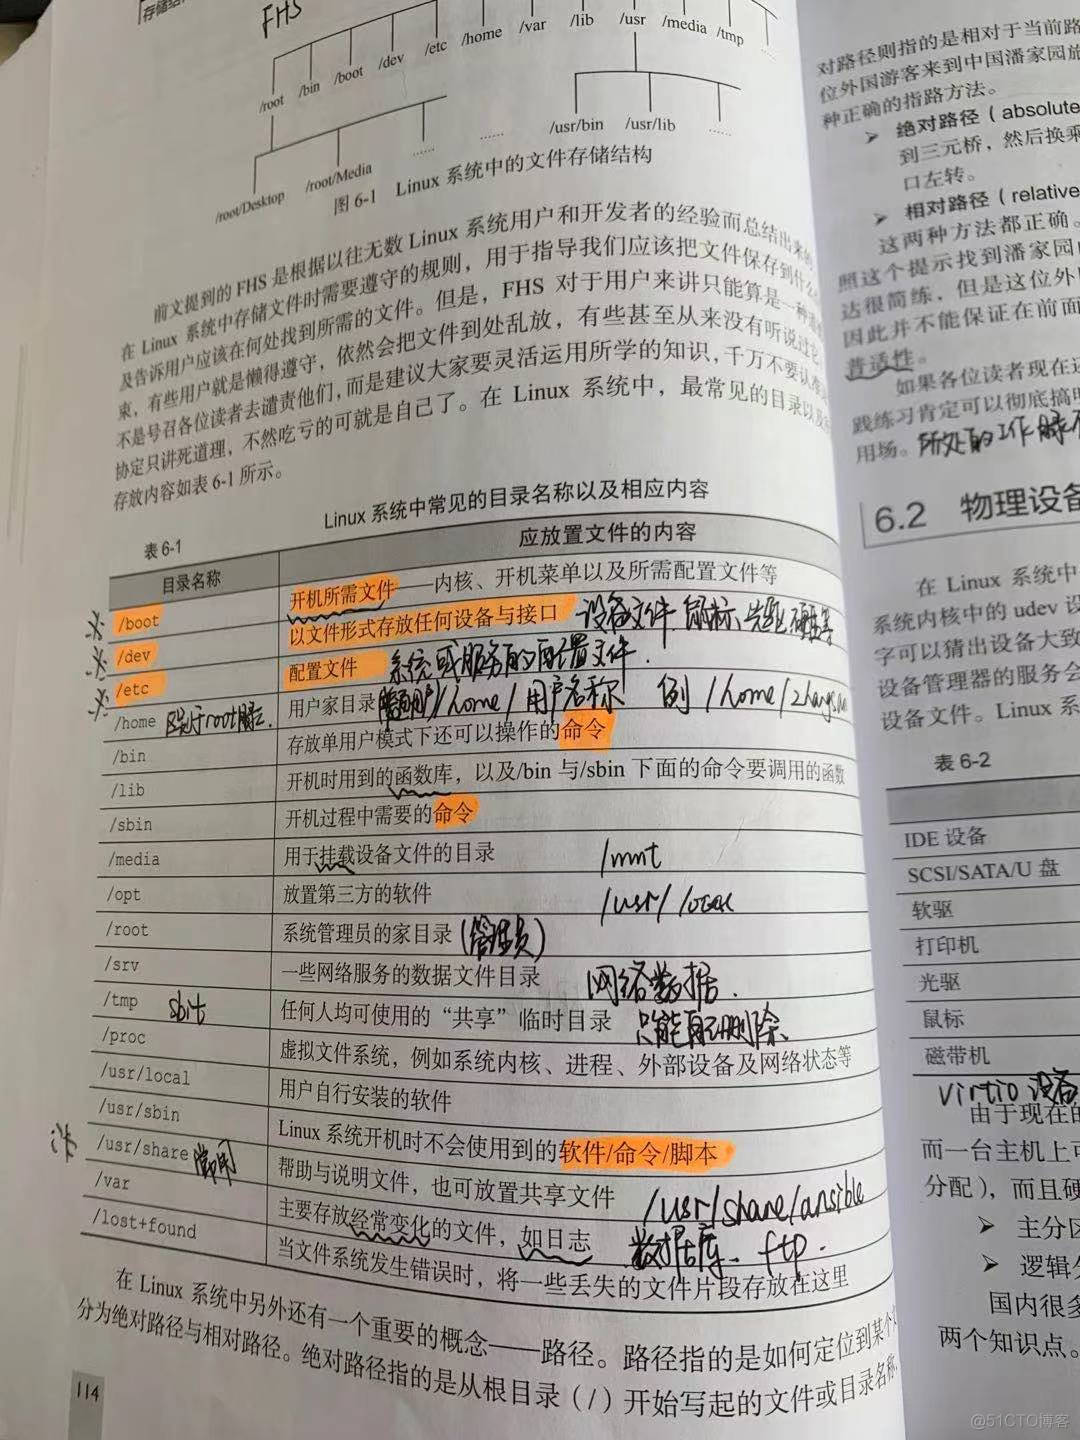 存储结
FHS
/root /bin /boot /dev /etc /home /var /lib /usr /media /tmp
/root/Desktop /root/Media …… …… /usr/bin /usr/lib ……
图 6-1 Linux 系统中的文件存储结构
前文提到的 FHS 是根据以往无数 Linux 系统用户和开发者的经验而总结出来的
在 Linux 系统中存储文件时需要遵守的规则，用于指导我们应该把文件保存到什么
及告诉用户应该在何处找到所需的文件。但是，FHS 对于用户来讲只能算是一种
束，有些用户就是懒得遵守，依然会把文件到处乱放，有些甚至从来没有听说过它
不是号召各位读者去谴责他们，而是建议大家要灵活运用所学的知识，千万不要认准
协定只讲死道理，不然吃亏的可就是自己了。在 Linux 系统中，最常见的目录以及
存放内容如表 6-1 所示。
表 6-1 Linux 系统中常见的目录名称以及相应内容
目录名称 应放置文件的内容
/boot 开机所需文件——内核、开机菜单以及所需配置文件等
/dev 以文件形式存放任何设备与接口 设备文件 鼠标、光驱 硬盘等
/etc 配置文件 系统或服务的配置文件.
/home 用户家目录 /home/用户名称 例 /home/
/bin 存放单用户模式下还可以操作的命令
/lib 开机时用到的函数库，以及/bin 与/sbin 下面的命令要调用的函数
/sbin 开机过程中需要的命令
/media 用于挂载设备文件的目录 /mnt
/opt 放置第三方的软件 /usr/local
/root 系统管理员的家目录 (管理员)
/srv 一些网络服务的数据文件目录 网络数据.
/tmp sbit 任何人均可使用的“共享”临时目录 只能自己删除.
/proc 虚拟文件系统，例如系统内核、进程、外部设备及网络状态等
/usr/local 用户自行安装的软件
/usr/sbin Linux 系统开机时不会使用到的软件/命令/脚本
/usr/share 常用 帮助与说明文件，也可放置共享文件 /usr/share/ansible
/var 主要存放经常变化的文件，如日志 数据库. ftp.
/lost+found 当文件系统发生错误时，将一些丢失的文件片段存放在这里
在 Linux 系统中另外还有一个重要的概念——路径。路径指的是如何定位到某个
分为绝对路径与相对路径。绝对路径指的是从根目录（/）开始写起的文件或目录名称，
114
对路径则指的是相对于当前路
位外国游客来到中国潘家园旅
种正确的指路方法。
➢ 绝对路径（absolute
到三元桥，然后换乘
口左转。
➢ 相对路径（relative
这两种方法都正确。
照这个提示找到潘家园
达很简练，但是这位外
因此并不能保证在前面
普适性。
如果各位读者现在还
践练习肯定可以彻底搞明
用场。所处的工作
6.2 物理设备
在 Linux 系统中
系统内核中的 udev 设
字可以猜出设备大致
设备管理器的服务会
设备文件。Linux 系
表 6-2
IDE 设备
SCSI/SATA/U 盘
软驱
打印机
光驱
鼠标
磁带机
virtio 设备
由于现在的
而一台主机上可
分配），而且硬
➢ 主分区
➢ 逻辑分
国内很多
两个知识点。
@51CTO博客